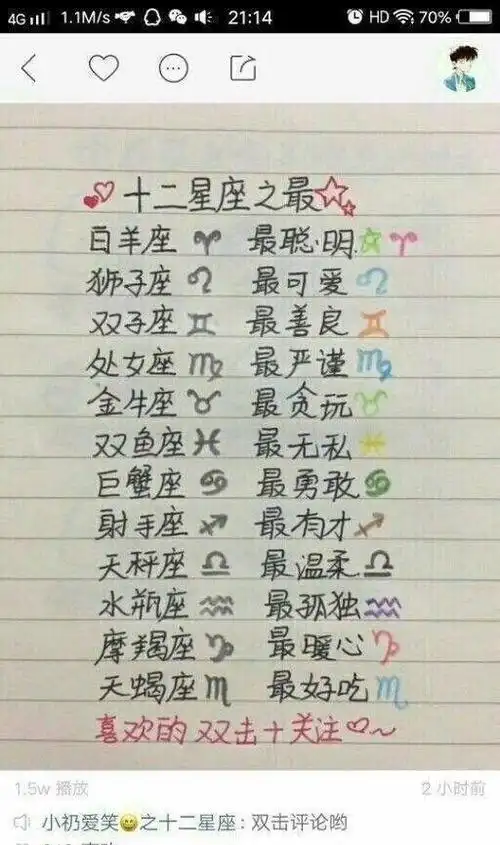 4G 1.1M/s 21:14 HD 70%
十二星座之最
白羊座 最聪明
狮子座 最可爱
双子座 最善良
处女座 最严谨
金牛座 最贪玩
双鱼座 最无私
巨蟹座 最勇敢
射手座 最有才
天秤座 最温柔
水瓶座 最孤独
摩羯座 最暖心
天蝎座 最好吃
喜欢的 双击+关注♡~
1.5w 播放 2 小时前
小礽爱笑😄之十二星座:双击评论哟